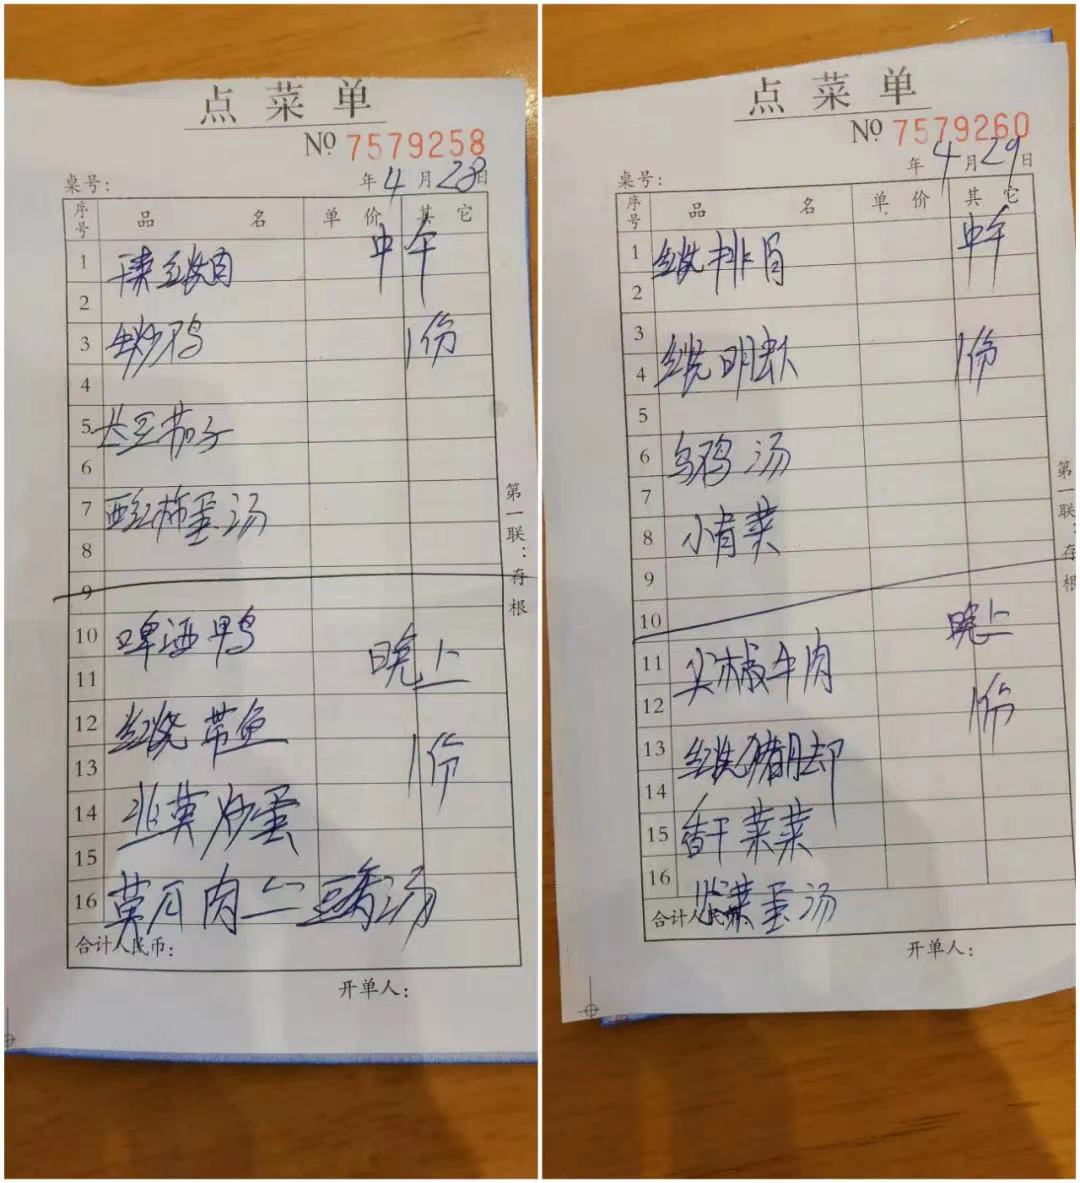 点菜单
No 7579258
桌号: 年4月28日
序号 品名 单价 其它
1 红烧肉 中午
2
3 生炒鸡 1份
4
5 茄子
6
7 西红柿蛋汤
8
9
10 啤酒鸭 晚上
11
12 红烧带鱼
13 1份
14 韭黄炒蛋
15
16 黄瓜肉片 汤
合计人民币:
开单人:
第一联:存根
点菜单
No 7579260
桌号: 年4月29日
序号 品名 单价 其它
1 红烧排骨 中午
2
3
4 红烧明虾 1份
5
6 乌鸡汤
7
8 小青菜
9
10 晚上
11 尖椒牛肉
12 1份
13 红烧猪脚
14
15 香干菜
16
合计人民币: 蛋汤
开单人:
第一联:存根